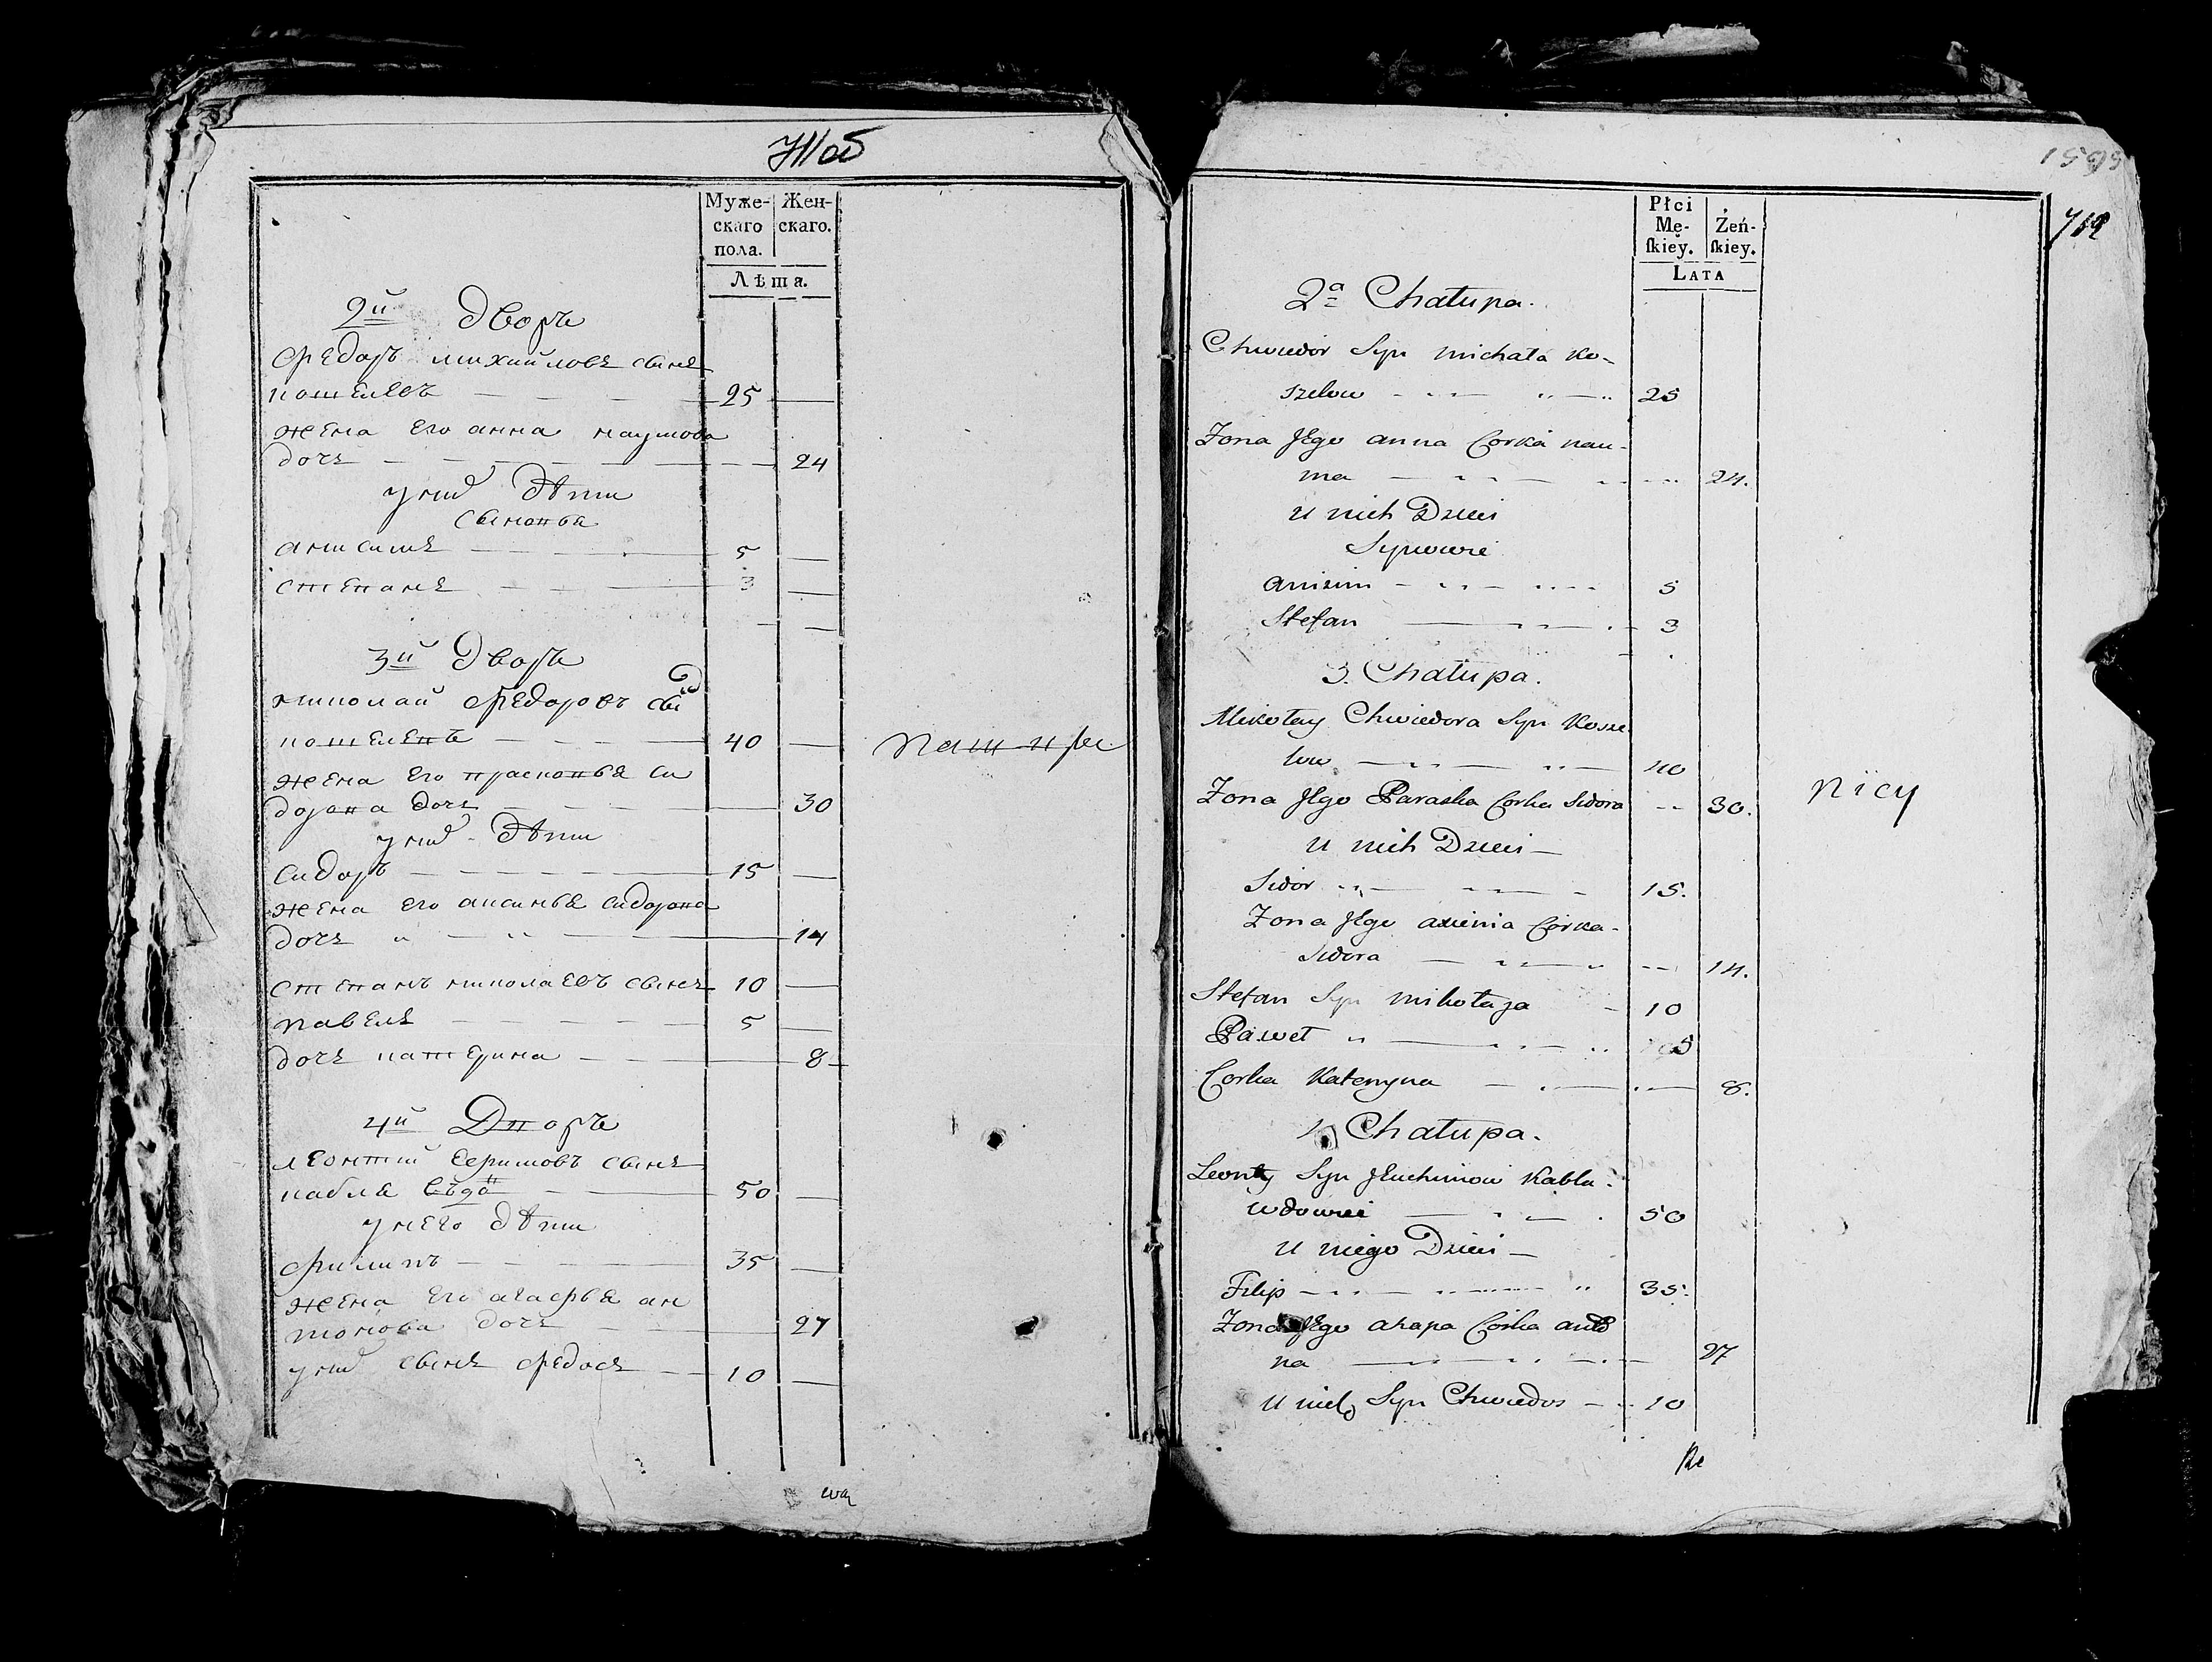 Муже-
скаго
пола.
Жен-
скаго.
Лѣта.
2й Дворъ
Федоръ михайловъ сынъ
кошелевъ 25
жена его анна наумова
дочь 24
у них дѣти
сыновья
анисимъ 5
степанъ 3
3й Дворъ
николай Федоровъ сы
кошелевъ 40
жена его прасковья си
дорова дочь 30
у них дѣти
сидоръ 15
жена его аксинья сидорова
дочь 14
степанъ николаевъ сынъ 10
павелъ 5
дочь катерина 8
4й Дворъ
леонтий сынъ
50
у него дѣти
филипъ 35
жена его агафья ан
тонова дочь 27
у них сынъ федосъ 10
Płci
Mę-
ſkiey.
Żeń-
ſkiey.
LATA
2a Chałupa.
Chwiedor Syn michała Ko-
szelow 25
Zona Jego anna Corka nau-
ma 24.
u nich Dzieci
Synowie
anisim 5
Stefan 3
3. Chałupa.
Mikołay Chwiedora Syn Kosze
low 40
Zona Jego Paraska Corka Sidora 30.
u nich Dzieci
Sidor 15.
Zona Jego axienia Corka
Sidora 14.
Stefan Syn mikołaja 10
Paweł 5
Corka Kateryna 8.
Chałupa.
Leonty Syn Kabła
50
u niego Dzieci
Filip 35.
Zona Jego ahapa Corka anto
na 27
u nich Syn Chwiedos 10